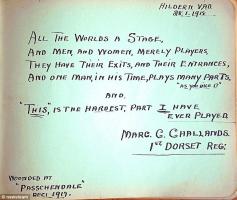 ALL THE WORLDS A STAGE,
AND MEN, AND WOMEN, MERELY PLAYERS,
THEY HAVE THEIR EXITS, AND THEIR ENTRANCES,
AND ONE MAN, IN HIS TIME, PLAYS MANY PARTS.
"AS YOU LIKE IT"
AND.
"THIS", IS THE HARDEST, PART I HAVE
EVER PLAYED.
MARC. G. CHALLANDS.
1ST DORSET REG:
WOUNDED AT
"PASSCHENDALE"
DEC 1, 1917.